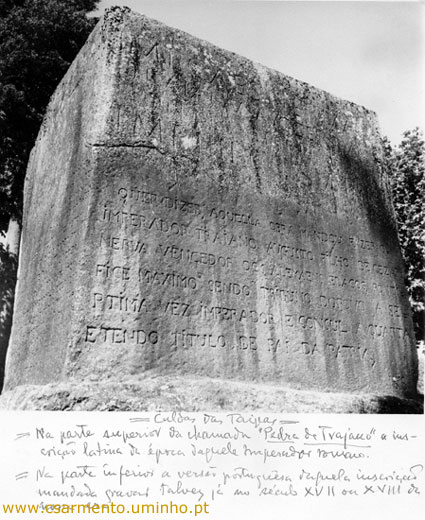 QUER DIZER, AQUELLA OBRA MANDOU FAZER
IMPERADOR TRAIANO AUGUSTO FILHO DE
NERVA VENCEDOR DE
FICE MAXIMO SENDO TRIBUNO DO POVO A SE
PTIMA VEZ IMPERADOR E CONSUL A QUARTA
E TENDO TITULO DE PAI DA PATRIA,
= Caldas das Taipas =
= Na parte superior da chamada "Pedra de Trajano" a ins-
crição latina da época daquele Imperador romano.
= Na parte inferior a versão portuguesa daquela inscrição
mandada gravar talvez já no século XVII ou XVIII da
nossa era
www.csarmento.uminho.pt